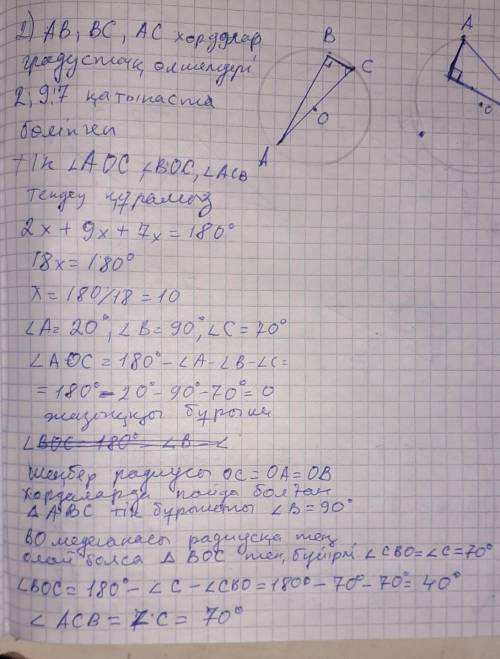 2) AB, BC, AC хордлар
градустық өлшемдері
2, 9:7 қатынаста
бөлінген
B
C
O
A
A
O
т/к ∠AOC, ∠BOC, ∠ACB
теңдеу құрамыз
2x + 9x + 7x = 180°
18x = 180°
x = 180/18 = 10
∠A = 20°, ∠B = 90°, ∠C = 70°
∠AOC = 180° - ∠A - ∠B - ∠C =
= 180° - 20° - 90° - 70° = 0
жазыңқы бұрыш
∠BOC = 180° - ∠B - ∠
шеңбер радиусы OC = OA = OB
хордаларда пайда болған
△ ABC тік бұрышты ∠B = 90°
BO медианасы радиусқа тең
олай болса △ BOC тең бүйірлі ∠CBO = ∠C = 70°
∠BOC = 180° - ∠C - ∠CBO = 180° - 70° - 70° = 40°
∠ ACB = ∠C = 70°